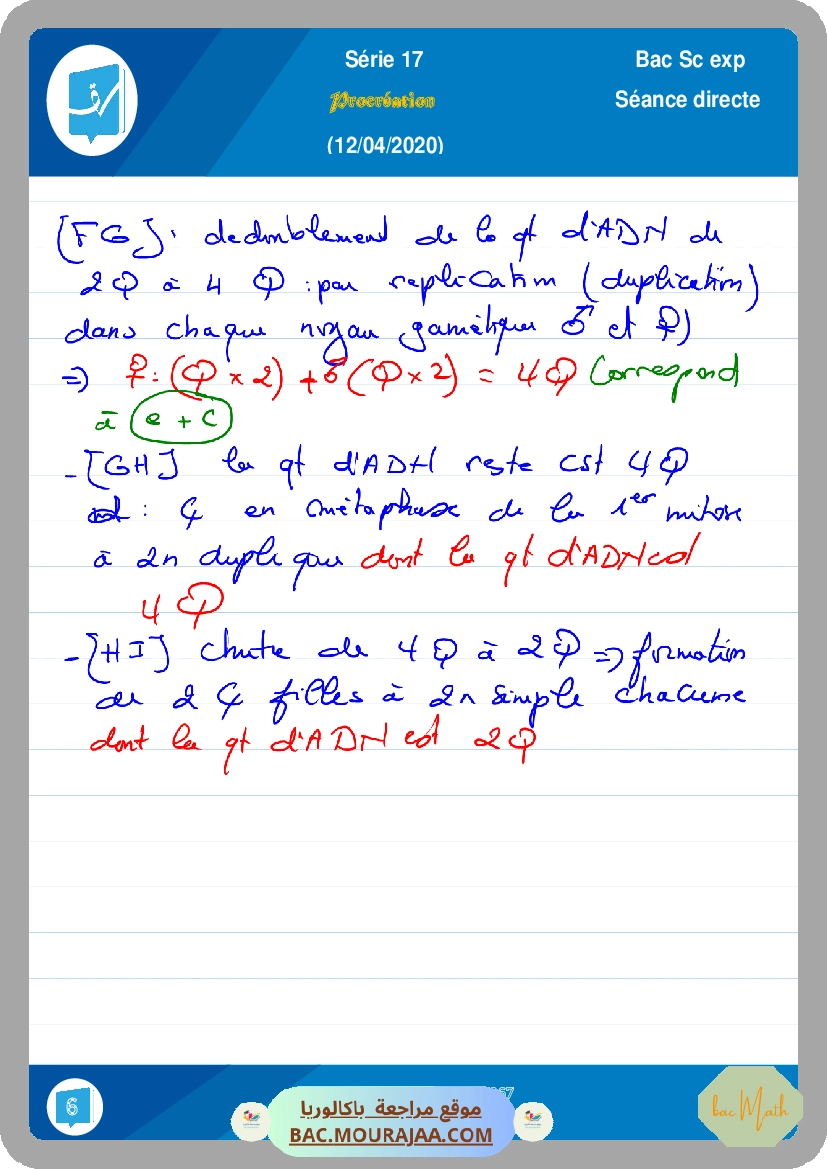 Série 17
Bac Sc exp
Procréation
Séance directe
(12/04/2020)
[FG]: dedoublement de la qt d'ADN de
2Q à 4 Q : par replication (duplication)
dans chaque noyau gamétique ♂ et ♀)
=> ♀: (Q x 2) + ♂ (Q x 2) = 4Q Correspond
à e + c
- [GH] la qt d'ADN reste cst 4Q
: ç en métaphase de la 1er mitose
à 2n dupliqué dont la qt d'ADN est
4 Q
- [HI] chute de 4 Q à 2Q => formation
de 2 ç filles à 2n simple chacune
dont la qt d'ADN est 2Q
6
موقع مراجعة باكالوريا
BAC.MOURAJAA.COM
bac Math